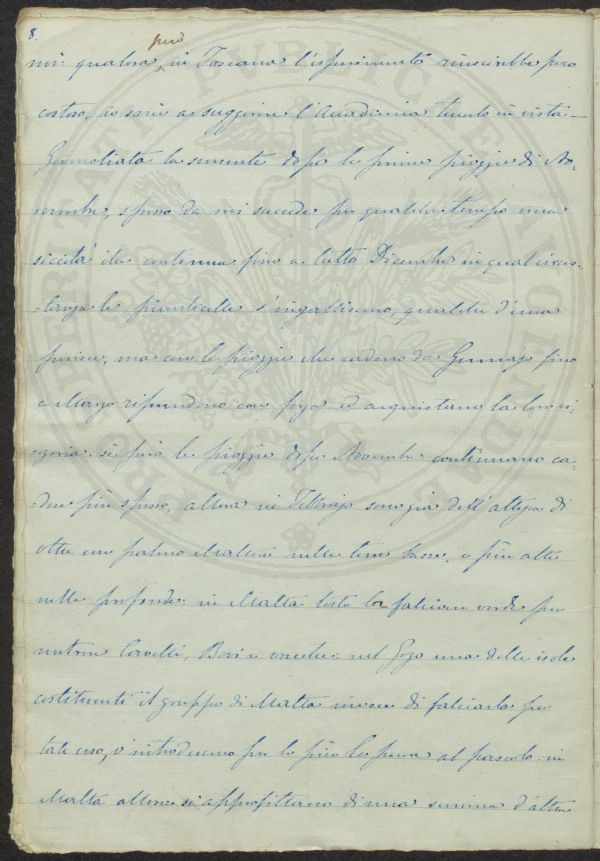 8.
però
mi: qualora in Toscana l'esperimento riuscirebbe poco
costoso, io sarei a suggerire l'Accademia tenerlo in vista.
Germogliata la semente dopo le prime pioggie di No-
vembre, spesso da noi succede per qualche tempo una
siccità che continua fino a tutto Dicembre in qual circos-
tanza le pianticelle s'ingialliscono, qualche d'una
perisce, ma con le pioggie che cadono da Gennajo fino
a Marzo riprendono con forza ed acquistano la loro vi-
goria: se però le pioggie dopo Novembre continuano ca-
dere più spesso, allora in Febbrajo sono già dell'altezza di
oltre un palmo Maltese nelle terre basse, e più alte
nelle profonde: in Malta tosto la falciano verde per
nutrire Cavalli, Bovi e vacche: nel Gozo una delle isole
costituenti il gruppo di Malta invece di falciarla per
tale uso, v'introducono per lo più le pecore al pascolo: in
Malta allora si approfittano di una semina d'altra